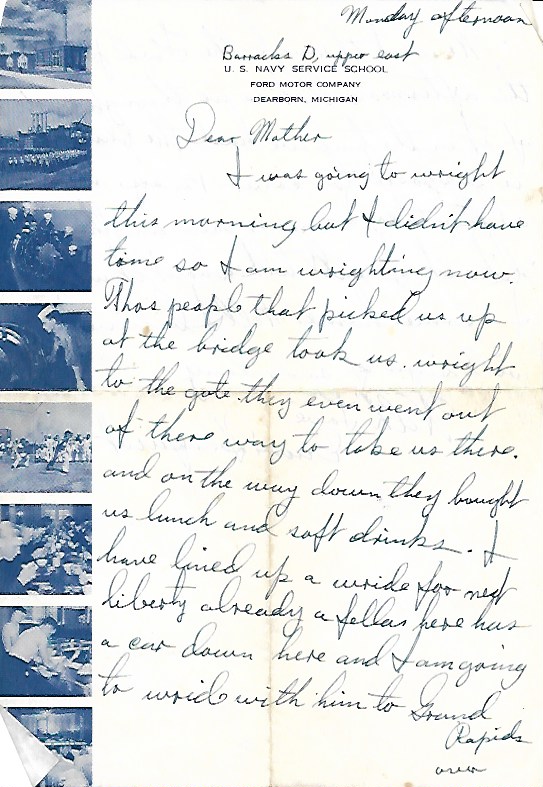 Monday afternoon
Barracks D, upper east
U. S. NAVY SERVICE SCHOOL
FORD MOTOR COMPANY
DEARBORN, MICHIGAN
Dear Mother
I was going to wright
this morning but I didn't have
time so I am wrighting now.
Thos people that picked us up
at the bridge took us wright
to the gate they even went out
of there way to take us there.
and on the way down they bought
us lunch and soft drinks. I
have lined up a wride for next
liberty already a fella here has
a car down here and I am going
to wrid with him to Grand
Rapids
over